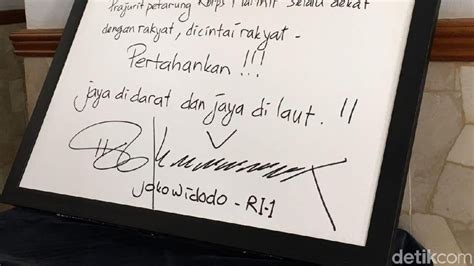 Prajurit petarung Korps Marinir selalu dekat
dengan rakyat, dicintai rakyat -
Pertahankan !!!
jaya di darat dan jaya di laut. !!
joko widodo - RI-1
detikcom